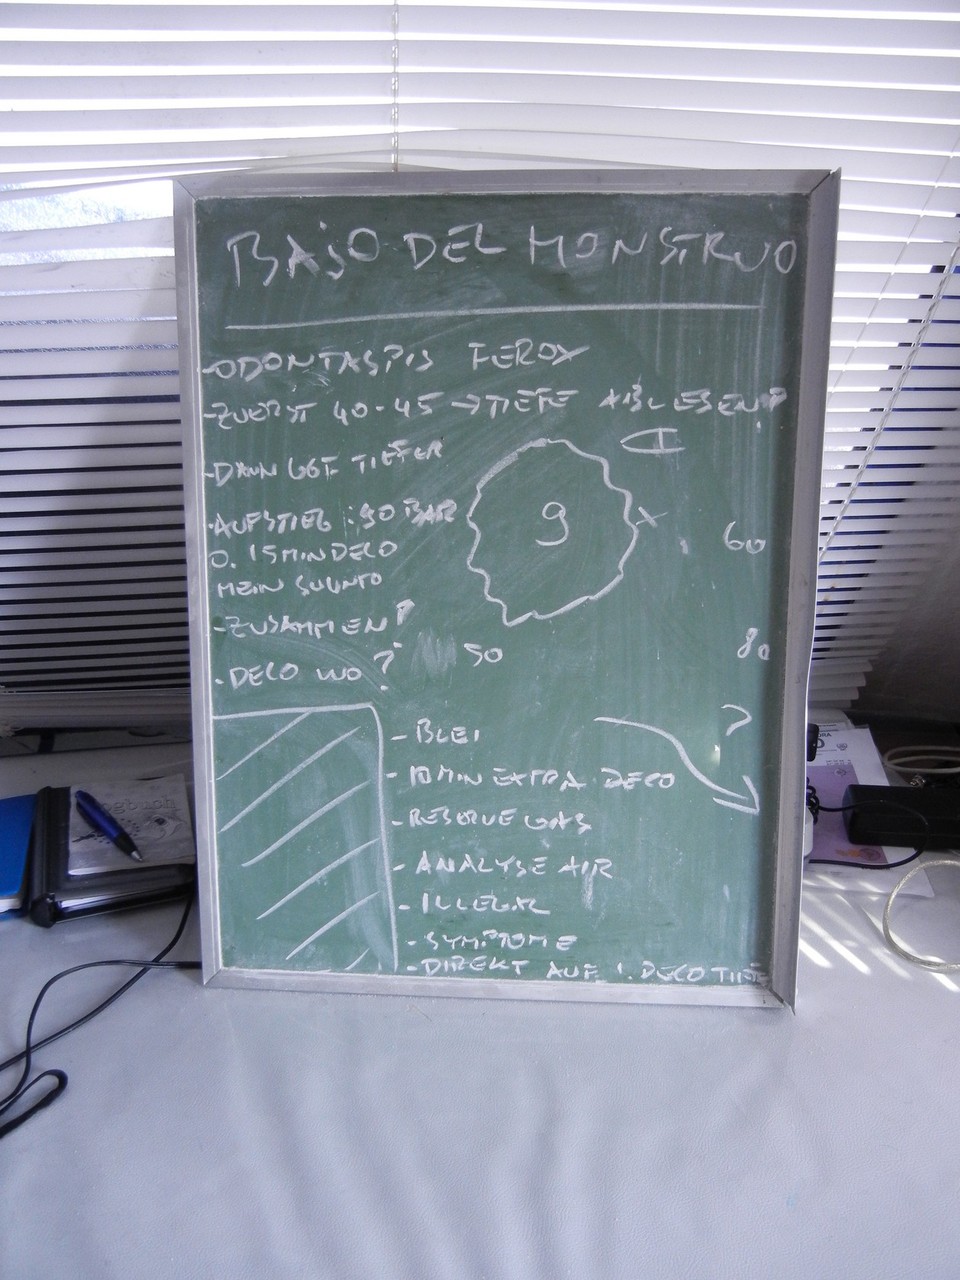 BAjO DEL MONSTRUO
-ODONTASPIS FEROX
-ZUERST 40-45 → TIEFE ABLESEN?
-DANN GGF. TIEFER
-AUFSTIEG : 90 BAR
O. 15 MIN DECO
MEIN SUUNTO
-ZUSAMMEN?
-DECO WO?
9
60
50
80
?
-BLEI
-10 MIN EXTRA DECO
-RESERVE GAS
-ANALYSE AIR
-ILLEGAL
-SYMPTOME
-DIREKT AUF 1. DECO TIEFE